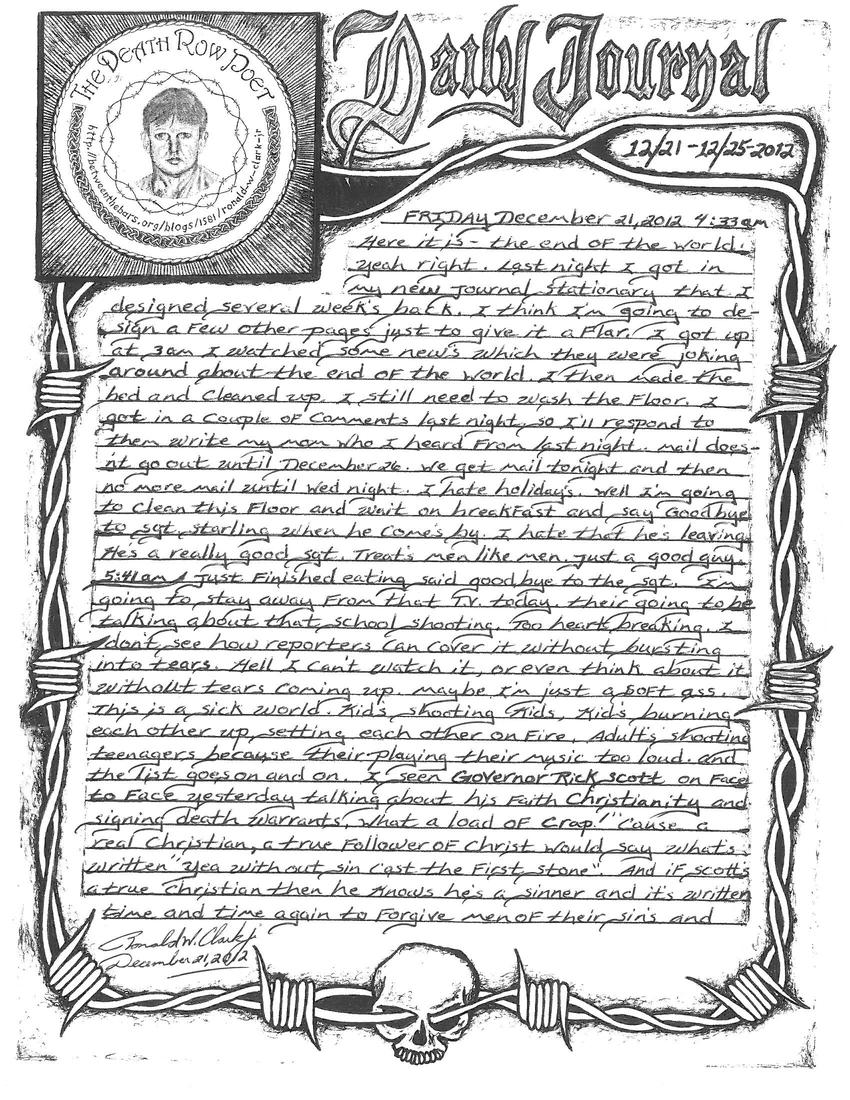 THE DEATH ROW POET
http://betweenthebars.org/blogs/1581/ronald-w-clark-jr
Daily Journal
12/21-12/25-2012
FRIDAY December 21, 2012 4:33am
Here it is - the end of the world.
Yeah right. Last night I got in
my new journal stationary that I
designed several week's back. I think I'm going to de-
sign a few other pages just to give it a Flar. I got up
at 3am I watched some new's which they were joking
around about the end of the world. I then made the
bed and cleaned up. I still need to wash the floor. I
got in a couple of comments last night. so I'll respond to
them write my mom who I heard from last night. mail does-
n't go out until December 26. we get mail tonight and then
no more mail until wed night. I hate holiday's. well I'm going
to clean this floor and wait on breakfast and say Goodbye
to sgt. starling when he come's by. I hate that he's leaving.
He's a really good sgt. Treat's men like men. just a good guy.
5:41am Just Finished eating said goodbye to the sgt. I'm
going to stay away from that TV. today. their going to be
talking about that school shooting. Too heart breaking. I
don't see how reporters can cover it without bursting
into tears. Hell I can't watch it, or even think about it
without tears coming up. maybe I'm just a soft ass.
This is a sick world. Kid's shooting Kids, Kid's burning
each other up, setting each other on Fire. Adult's shooting
teenagers because their playing their music too loud. and
the list goes on and on. I seen Governor Rick scott on Face
to Face yesterday talking about his Faith Christianity and
signing death warrants, what a load of crap! 'Cause a
real Christian, a true Follower of Christ would say what's
written "yea without sin cast the First stone". And if scott's
a true Christian then he knows he's a sinner and it's written
time and time again to forgive men of their sin's and
Ronald W. Clark jr
December 21, 2012